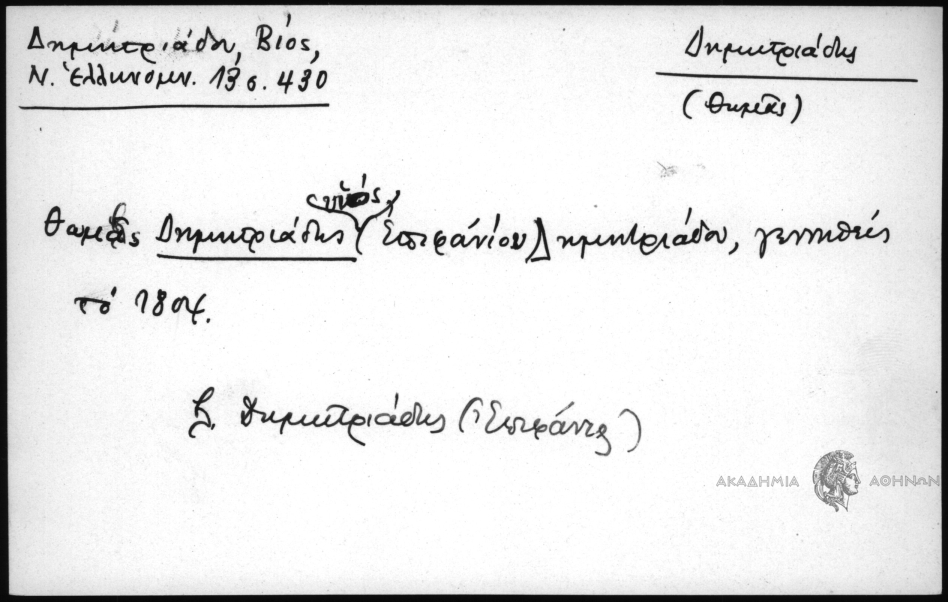 Δημητριάδου, Βίος,
Ν. Ἑλληνομν. 13 σ. 430
Δημητριάδης
(Θωμᾶς)
υἱός
Θωμᾶς Δημητριάδης (Ἐπιφανίου) Δημητριάδου, γεννηθείς
τό 1804.
β. Δημητριάδης (Ἐπιφάνιος)
ΑΚΑΔΗΜΙΑ ΑΘΗΝΩΝ